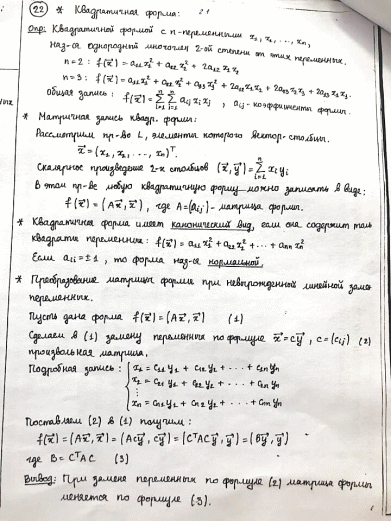 22 * Квадратичная форма: 21
Опр: Квадратичной формой с n-переменными x₁, x₂, ..., xₙ,
Наз-ся однородный многочлен 2-ой степени от этих переменных.
n=2: f(x⃗) = a₁₁x₁² + a₂₂x₂² + 2a₁₂x₁x₂
n=3: f(x⃗) = a₁₁x₁² + a₂₂x₂² + a₃₃x₃² + 2a₁₂x₁x₂ + 2a₂₃x₂x₃ + 2a₁₃x₁x₃
Общая запись: f(x⃗) = ∑ⁿᵢ₌₁ ∑ⁿⱼ₌₁ aᵢⱼxᵢxⱼ, aᵢⱼ - коэффициенты формы.
* Матричная запись квадр. формы:
Рассмотрим пр-во L, элементы которого вектор-столбцы.
x⃗ = (x₁, x₂, ..., xₙ)ᵀ.
Скалярное произведение 2-х столбцов (x⃗, y⃗) = ∑ⁿᵢ₌₁ xᵢyᵢ
В этом пр-ве любую квадратичную форму можно записать в виде:
f(x⃗) = (Ax⃗, x⃗), где A = (aᵢⱼ) - матрица формы.
* Квадратичная форма имеет канонический вид, если она содержит толь
квадраты переменных: f(x⃗) = a₁₁x₁² + a₂₂x₂² + ... + aₙₙxₙ²
Если aᵢᵢ = ±1, то форма наз-ся нормальной.
* Преобразование матрицы формы при невырожденной линейной замен
переменных.
Пусть дана форма f(x⃗) = (Ax⃗, x⃗) (1)
Сделаем в (1) замену переменных по формуле x⃗ = Cy⃗, C = (cᵢⱼ) (2)
произвольная матрица.
Подробная запись: { x₁ = c₁₁y₁ + c₁₂y₂ + ... + c₁ₙyₙ
x₂ = c₂₁y₁ + c₂₂y₂ + ... + c₂ₙyₙ
⋮
xₙ = cₙ₁y₁ + cₙ₂y₂ + ... + cₙₙyₙ
Поставляем (2) в (1) получим:
f(x⃗) = (Ax⃗, x⃗) = (ACy⃗, Cy⃗) = (CᵀACy⃗, y⃗) = (By⃗, y⃗)
где B = CᵀAC (3)
Вывод: При замене переменных по формуле (2) матрица формы
меняется по формуле (3).